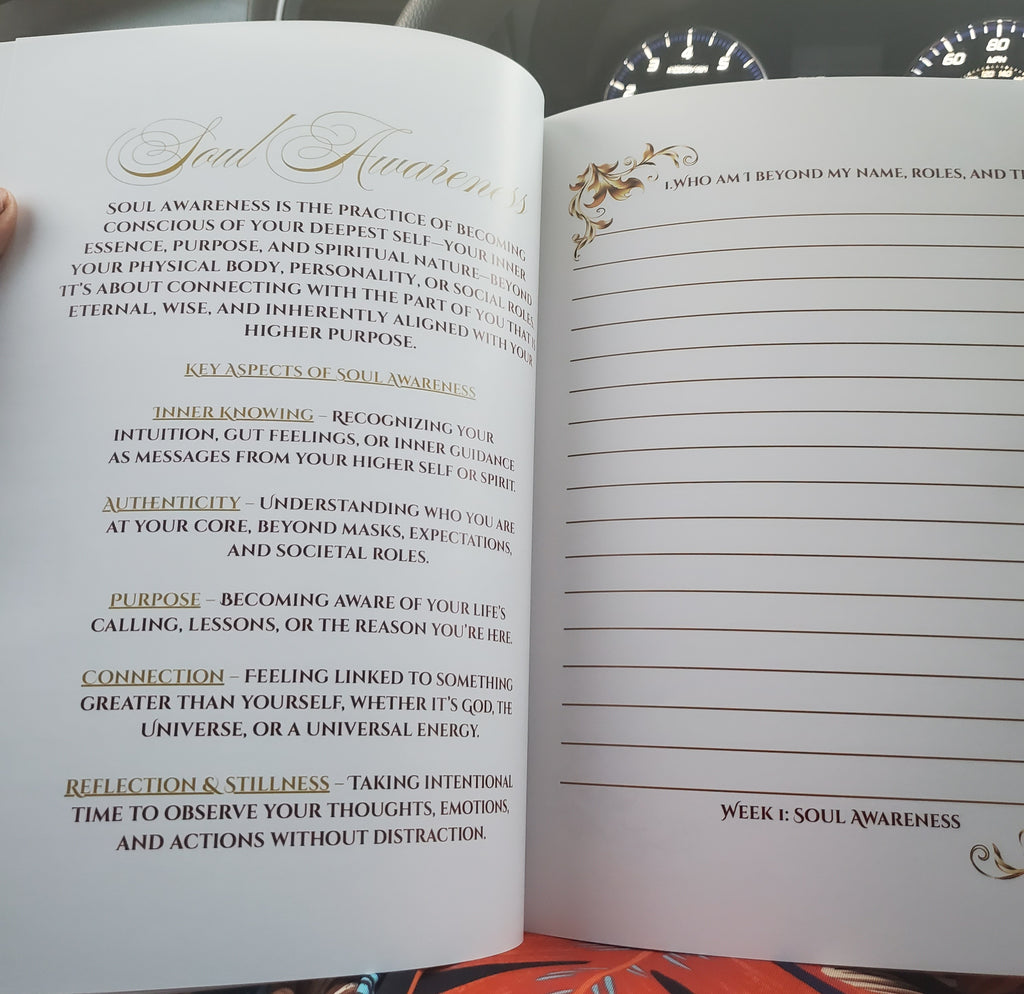 3 4 5
60 80
MPH
Soul Awareness
SOUL AWARENESS IS THE PRACTICE OF BECOMING
CONSCIOUS OF YOUR DEEPEST SELF—YOUR INNER
ESSENCE, PURPOSE, AND SPIRITUAL NATURE—BEYOND
YOUR PHYSICAL BODY, PERSONALITY, OR SOCIAL ROLES.
IT'S ABOUT CONNECTING WITH THE PART OF YOU THAT IS
ETERNAL, WISE, AND INHERENTLY ALIGNED WITH YOUR
HIGHER PURPOSE.
KEY ASPECTS OF SOUL AWARENESS
INNER KNOWING – RECOGNIZING YOUR
INTUITION, GUT FEELINGS, OR INNER GUIDANCE
AS MESSAGES FROM YOUR HIGHER SELF OR SPIRIT.
AUTHENTICITY – UNDERSTANDING WHO YOU ARE
AT YOUR CORE, BEYOND MASKS, EXPECTATIONS,
AND SOCIETAL ROLES.
PURPOSE – BECOMING AWARE OF YOUR LIFE'S
CALLING, LESSONS, OR THE REASON YOU'RE HERE.
CONNECTION – FEELING LINKED TO SOMETHING
GREATER THAN YOURSELF, WHETHER IT'S GOD, THE
UNIVERSE, OR A UNIVERSAL ENERGY.
REFLECTION & STILLNESS – TAKING INTENTIONAL
TIME TO OBSERVE YOUR THOUGHTS, EMOTIONS,
AND ACTIONS WITHOUT DISTRACTION.
1. WHO AM I BEYOND MY NAME, ROLES, AND
WEEK 1: SOUL AWARENESS